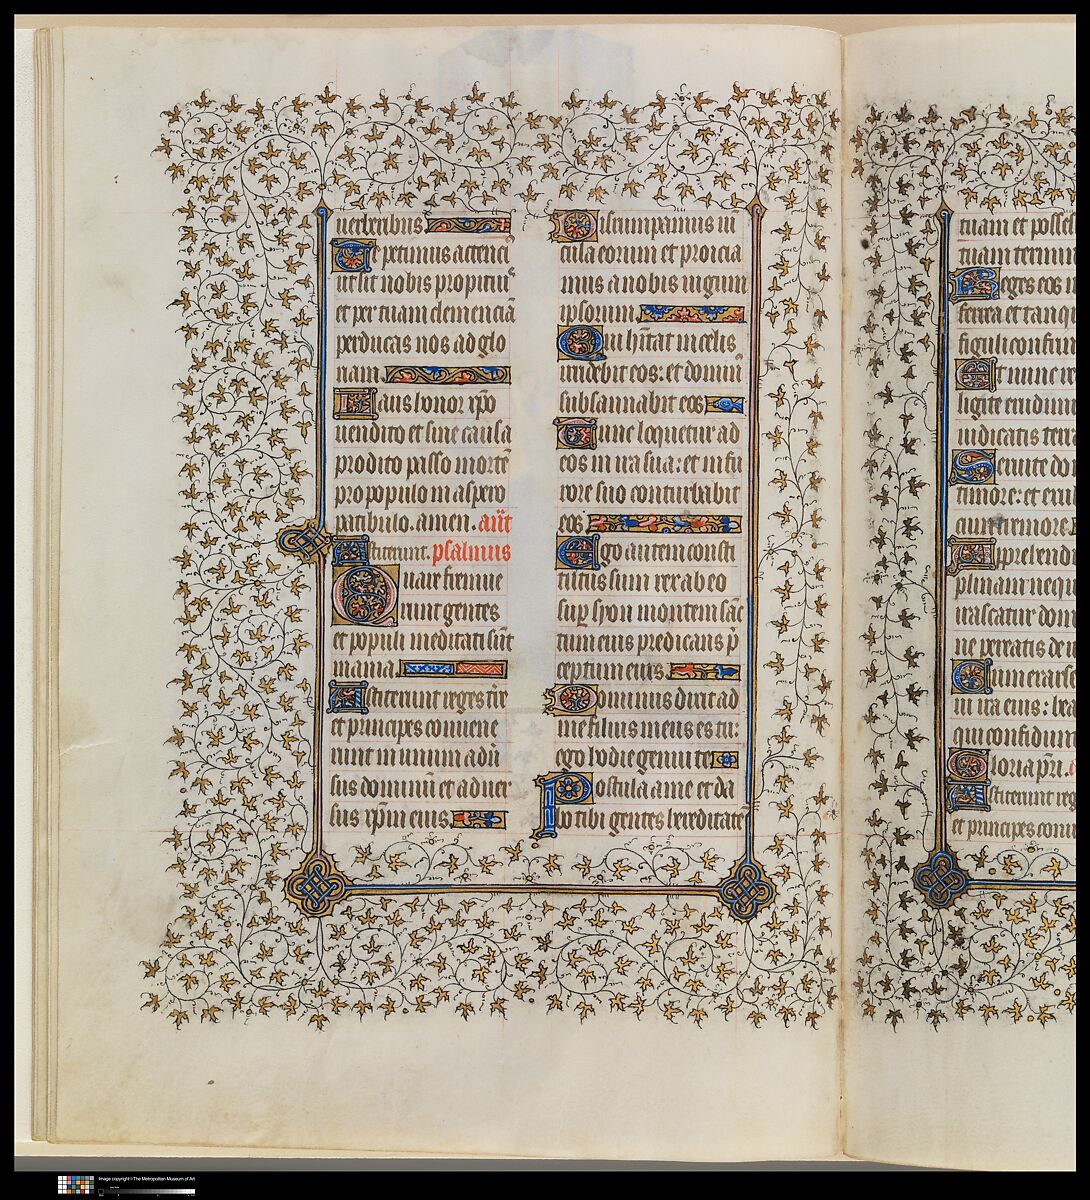 uerberibus
Te petimus attenci
ut sit nobis propiciū
et per tuam clemenciā
perducas nos ad glo
riam
Laus honor xp̄o
uendito et sine causa
prodito passo mortē
pro populo in aspero
patibulo. amen. an̄t
Astiterunt. psalmus
Quare fremue
runt gentes
et populi meditati sūt
inania
Astiterunt reges t̄re
et principes conuene
runt in unum adū
sus dominū et aduer
sus xp̄m eius
Disrumpamus ui
cula eorum et proicia
mus a nobis iugum
ipsorum
Qui hītat in celis
irridebit eos: et domin
subsannabit eos
Tunc loquetur ad
eos in ira sua: et in fu
rore suo conturbabit
eos
Ego autem consti
tutus sum rex ab eo
sup̄ syon montem sāc
tum eius predicans p̄
ceptum eius
Dominus dixit ad
me filius meus es tu:
ego hodie genui te
Postula a me et da
bo tibi gentes hereditatē
tuam et posses
tuam termin
Reges eos i
ferrea et tanqu
figuli confrin
Et nunc re
ligite erudimi
iudicatis terra
Seruite do
timore: et exul
cum tremore
Apprehend
plinam nequ
irascatur dom
ne pereatis de u
Cum exarse
in ira eius: bea
qui confidunt
Gloria pr̄i.
Astiterunt reg
et principes conu
Image copyright © The Metropolitan Museum of Art